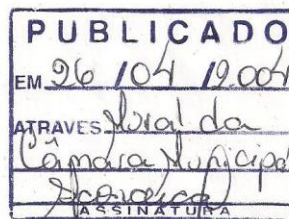 PUBLICADO
EM 26 / 04 / 2.004
ATRAVES Mural da
Câmara Municipal
ASSINATURA